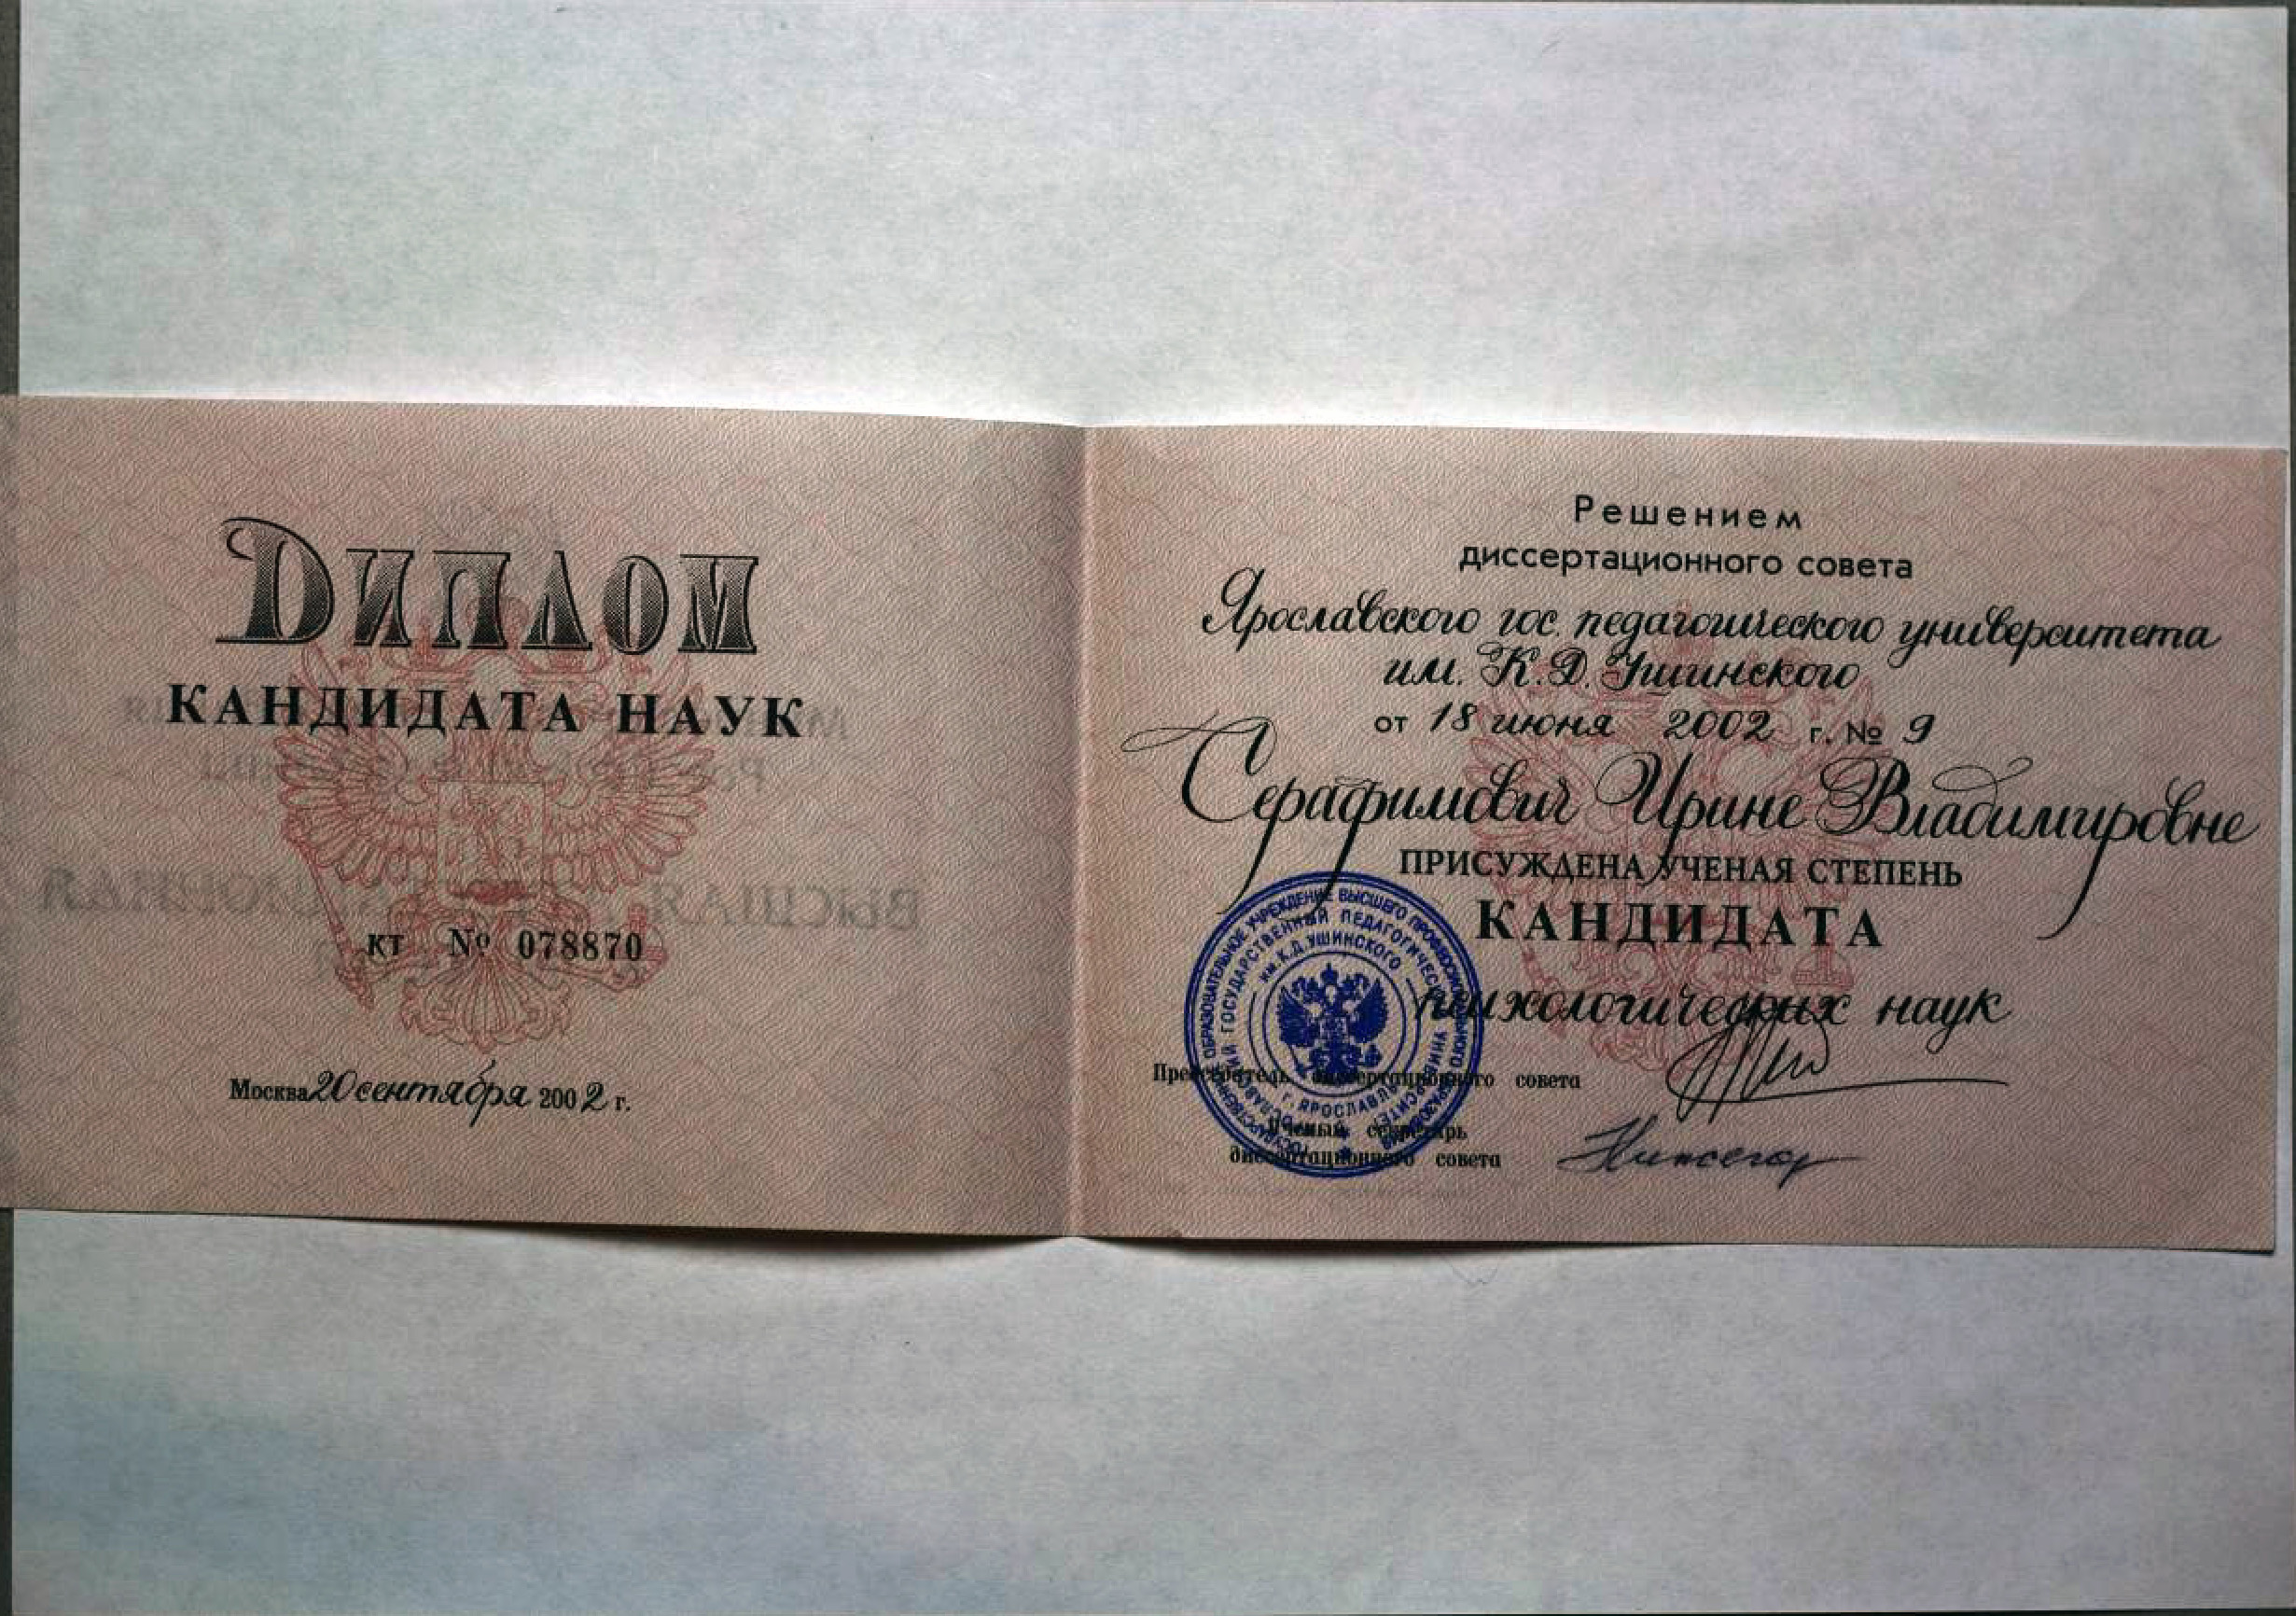 ДИПЛОМ
КАНДИДАТА НАУК
КТ № 078870
Москва 20 сентября 2002 г.
Решением
диссертационного совета
Ярославского гос. педагогического университета
им. К.Д. Ушинского
от 18 июня 2002 г. № 9
Серафимович Ирине Владимировне
ПРИСУЖДЕНА УЧЕНАЯ СТЕПЕНЬ
КАНДИДАТА
психологических наук
Председатель диссертационного совета
Ученый секретарь
диссертационного совета
ОБРАЗОВАТЕЛЬНОЕ УЧРЕЖДЕНИЕ ВЫСШЕГО
ГОСУДАРСТВЕННЫЙ ПЕДАГОГИЧЕСКИЙ
им. К.Д. УШИНСКОГО
г. ЯРОСЛАВЛЬ